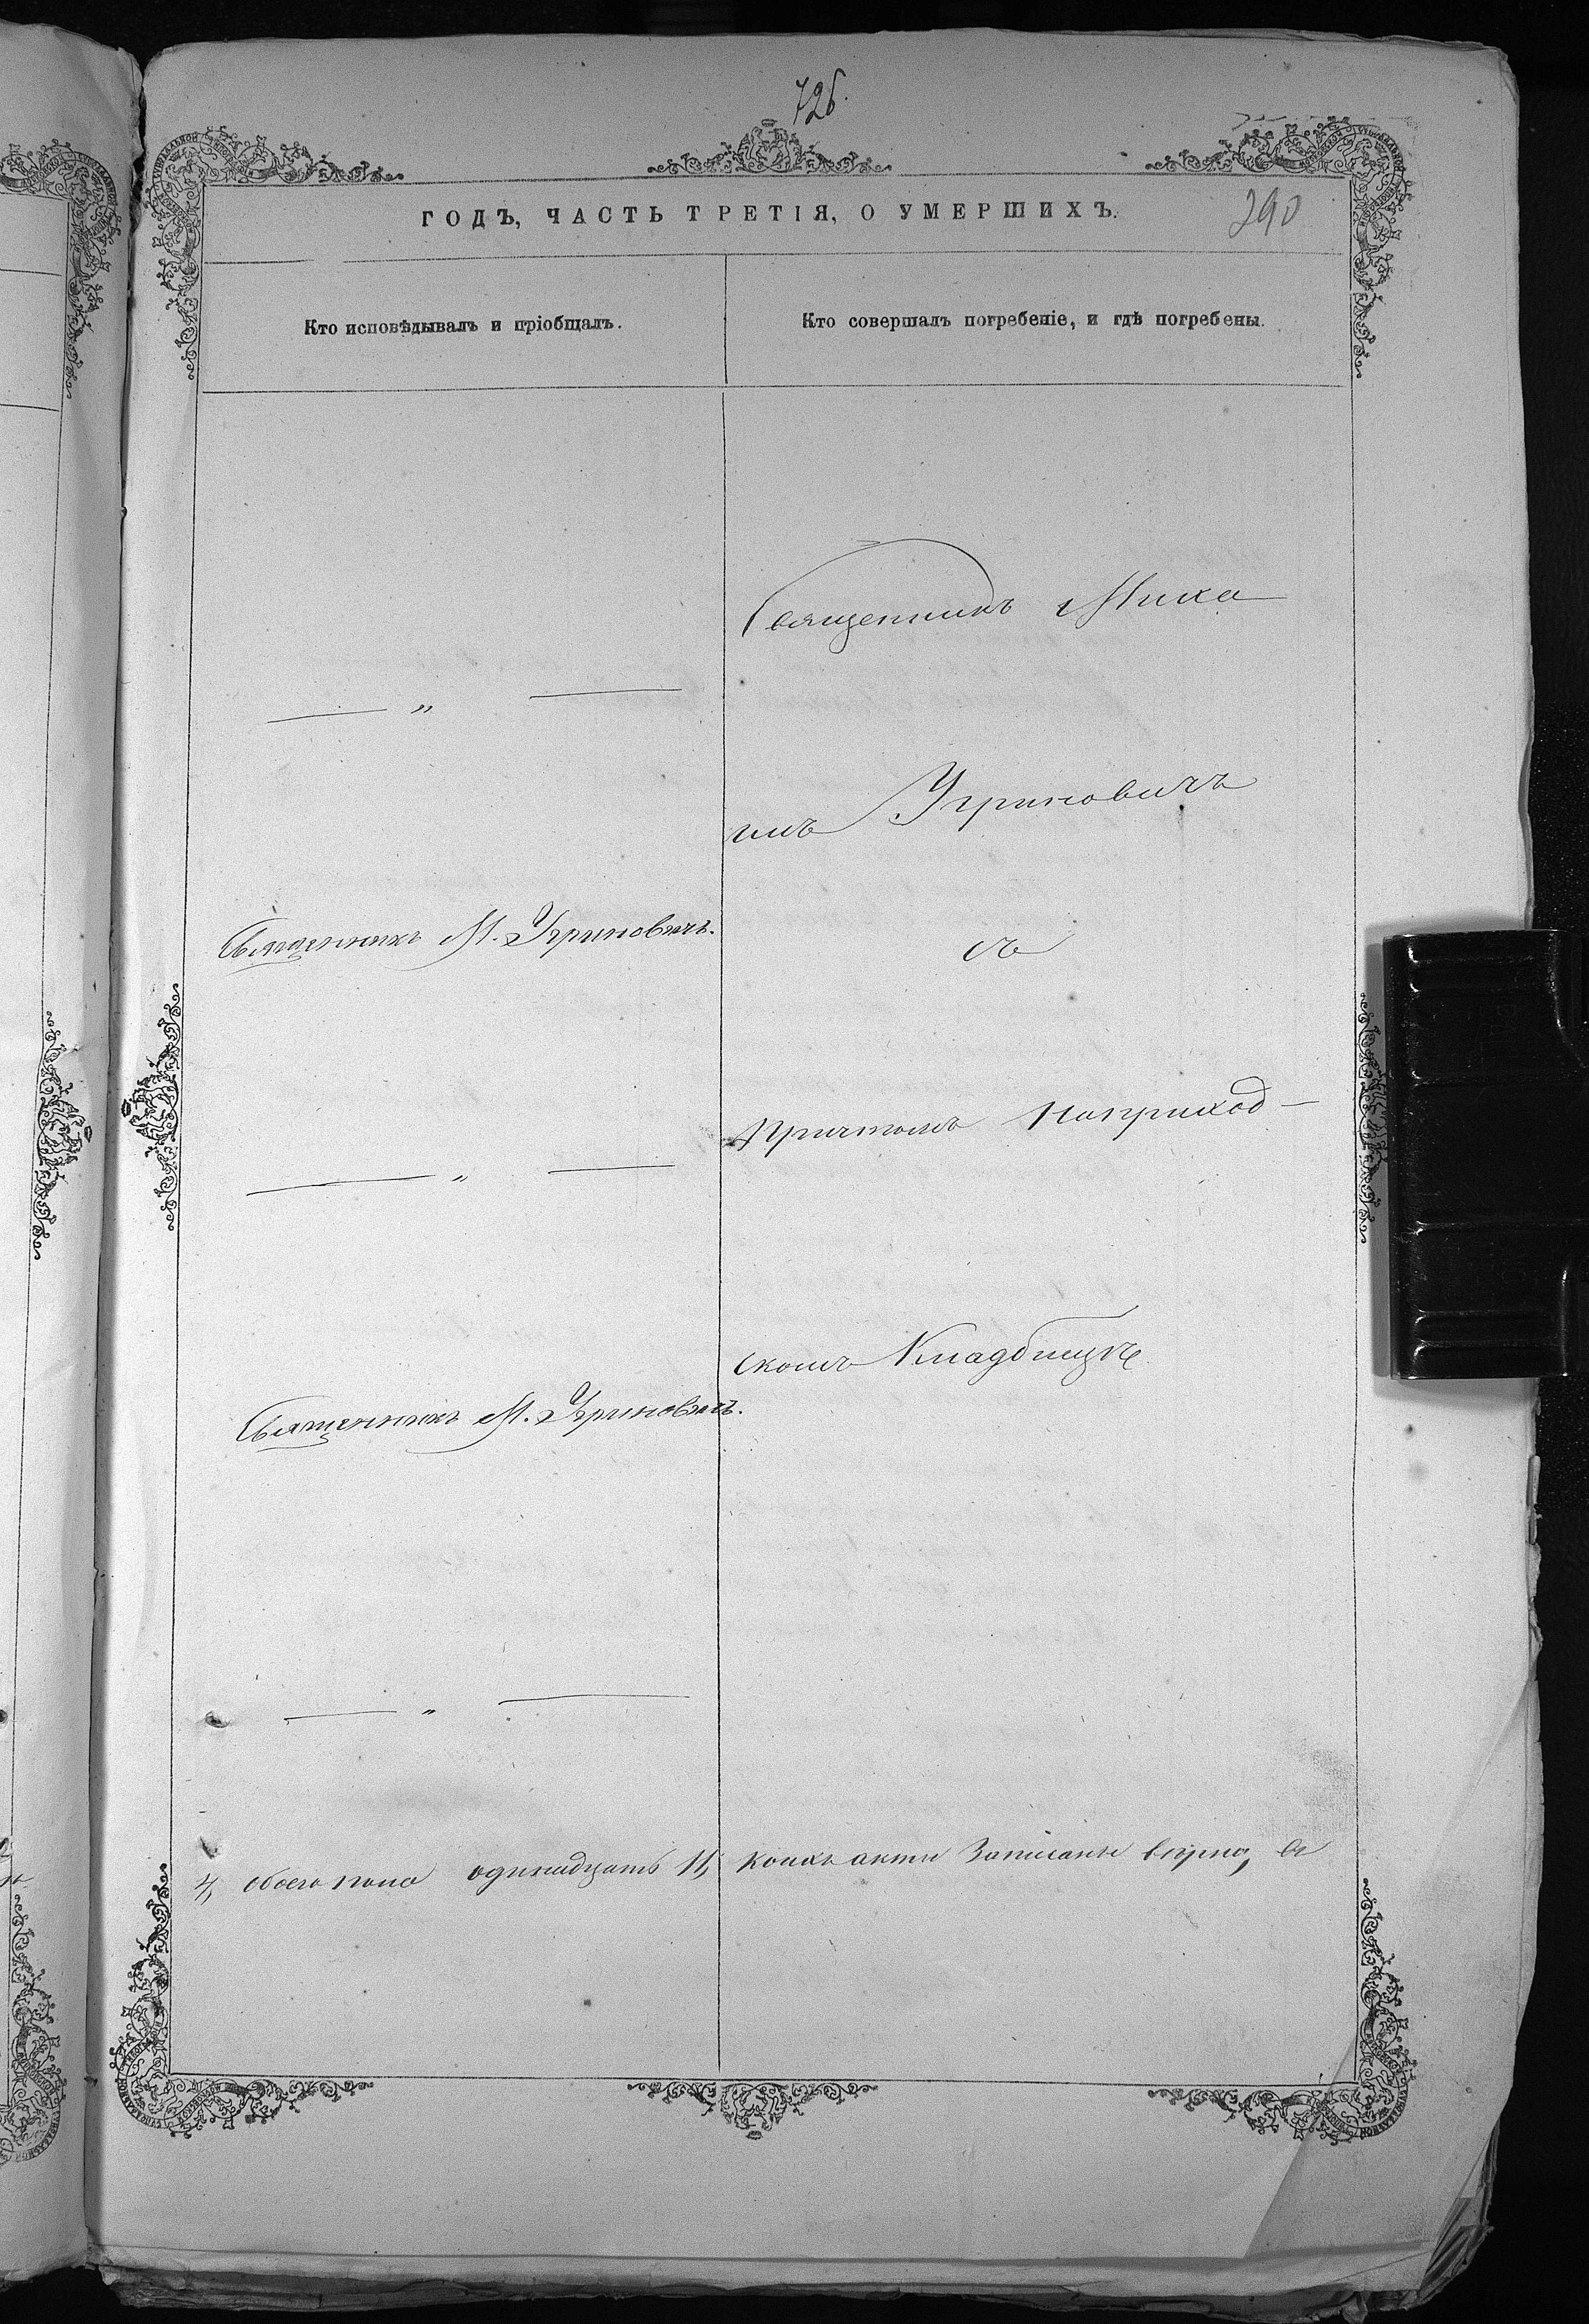 726.
ГОДЪ, ЧАСТЬ ТРЕТІЯ, О УМЕРШИХЪ.
290
Кто исповѣдывалъ и пріобщалъ.
Кто совершалъ погребеніе, и гдѣ погребены.
Священникъ Миха
— „ —
илъ Угриновичъ
Священникъ М. Угриновичъ.
съ
причтомъ наприход-
— „ —
скомъ Кладбищѣ
Священникъ М. Угриновичъ.
— „ —
4, обоего пола одинадцать 11, коихъ акты записаны вѣрно, въ